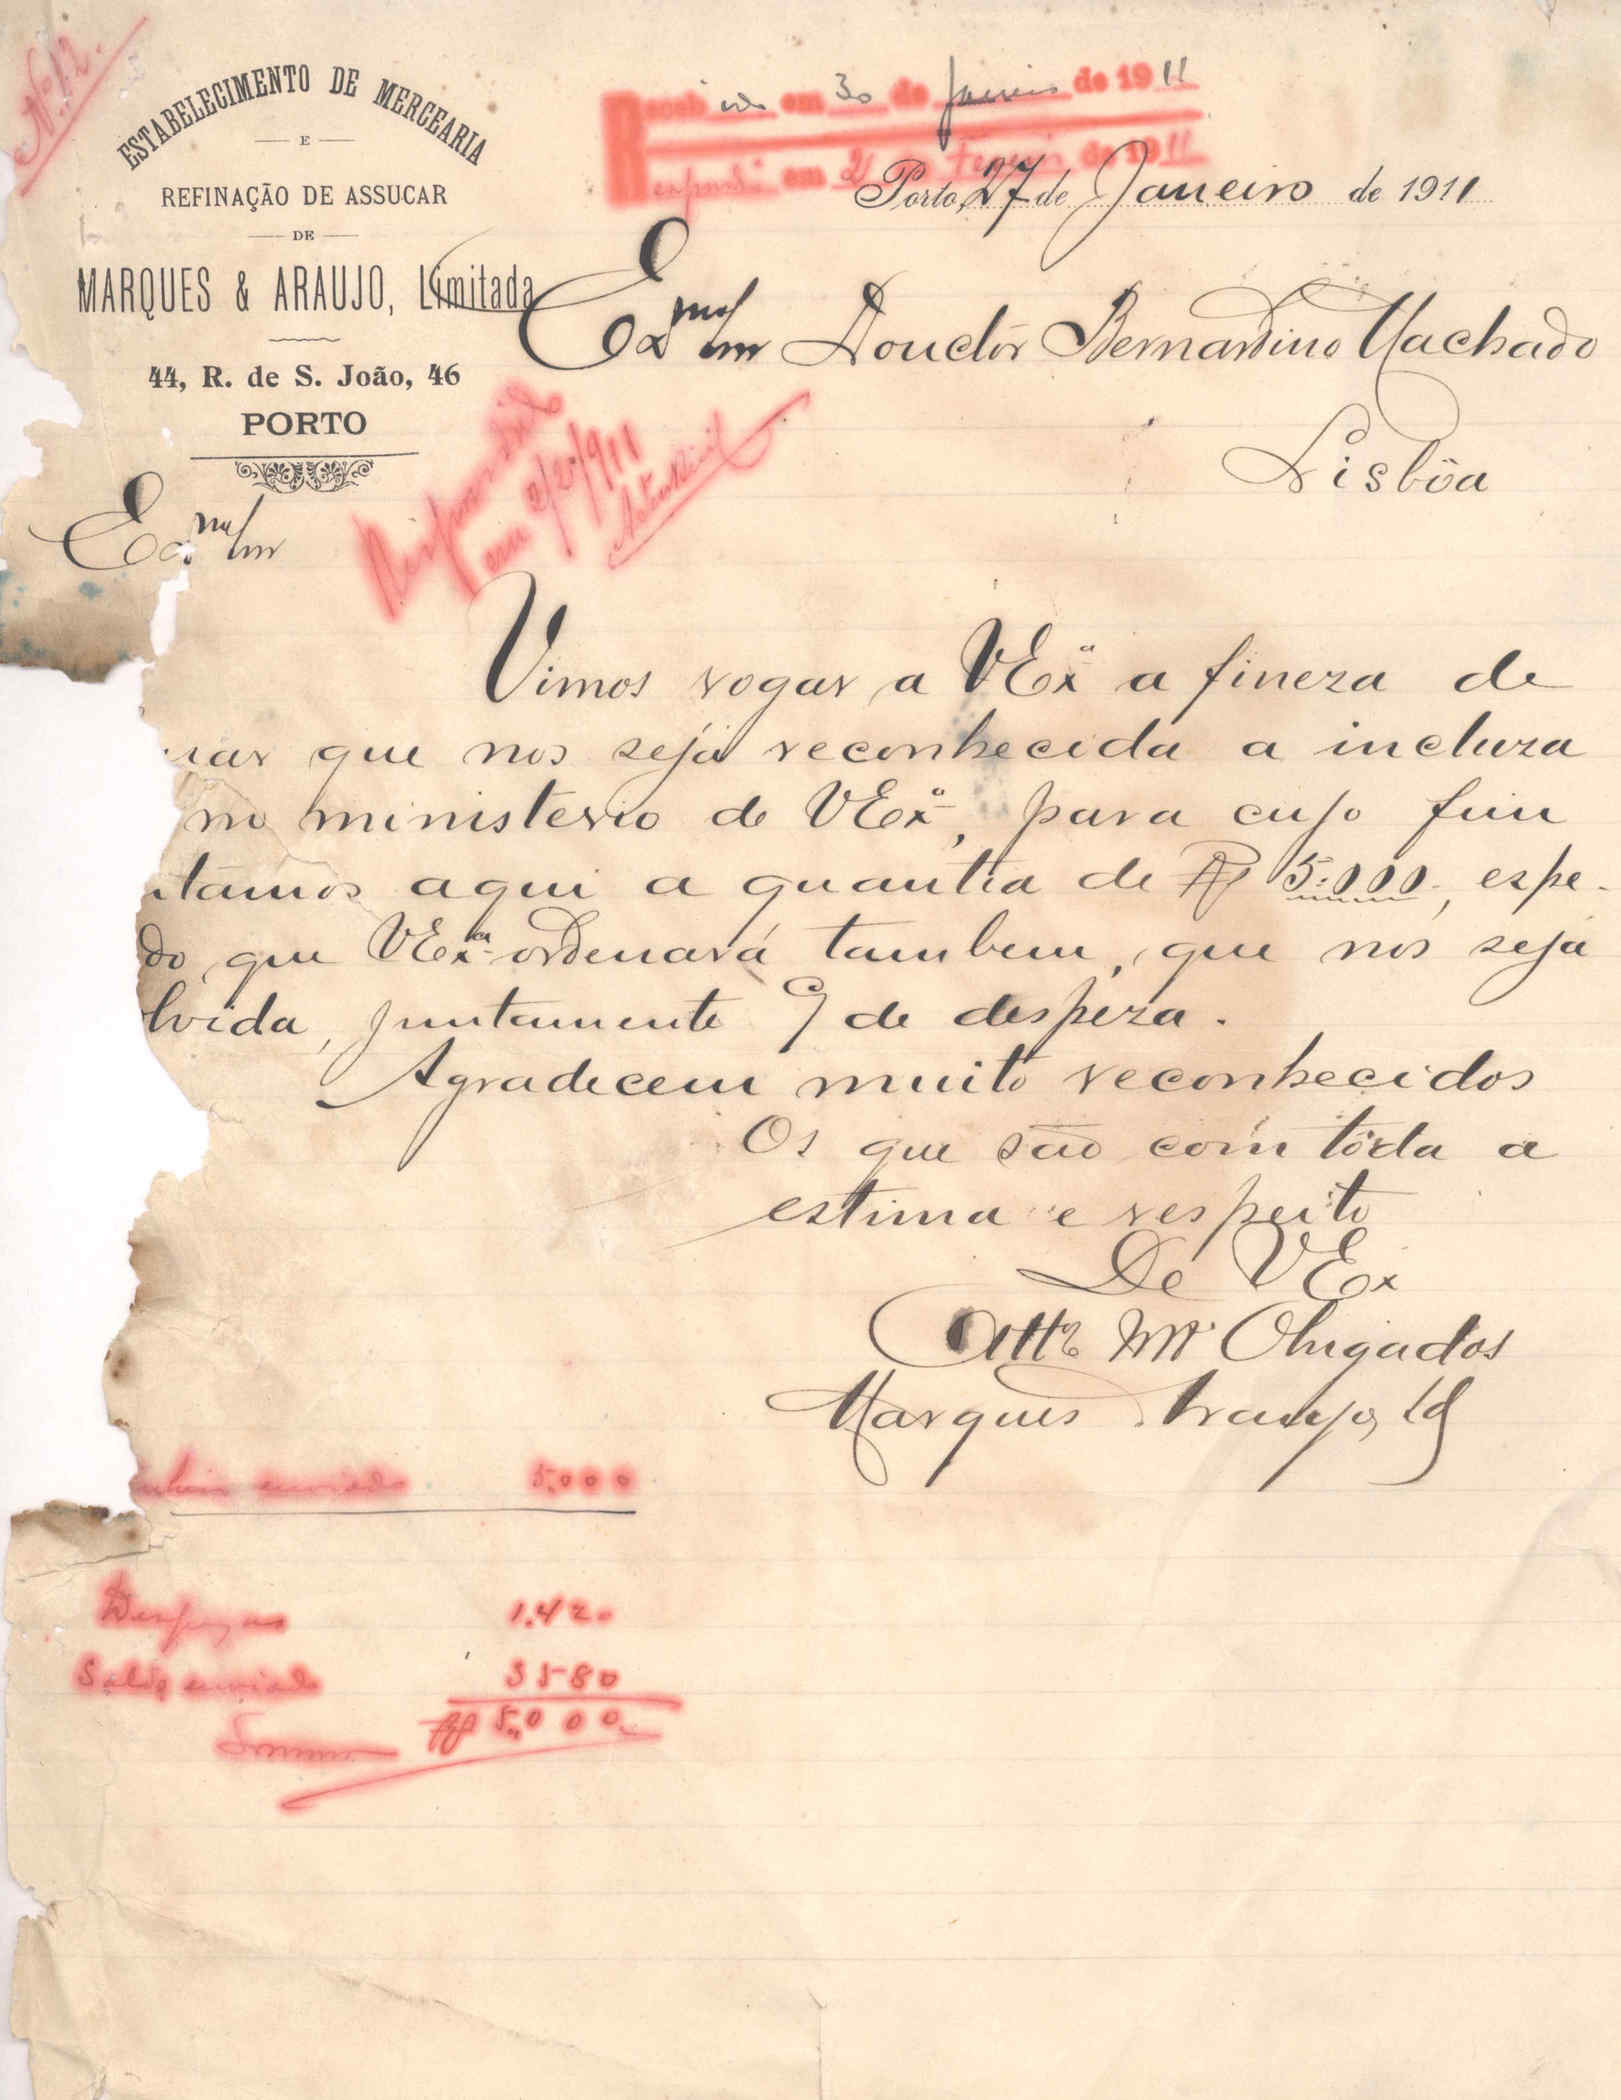 Nº 12.
ESTABELECIMENTO DE MERCEARIA
E
REFINAÇÃO DE ASSUCAR
DE
MARQUES & ARAUJO, Limitada
44, R. de S. João, 46
PORTO
Recebido em 30 de Janeiro de 1911
Respondi em 2 Fever de 1911
Porto, 27 de Janeiro de 1911
Exmº Snr Douctôr Bernardino Machado
Lisbôa
Respondido
em 2/2/911
Exmº Snr
Vimos rogar a VExª a fineza de
que nos seja reconhecida a incluza
no ministerio de VExª, para cujo fim
ntâmos aqui a quantia de Rs 5.000, espe-
do que VExª ordenará tambem, que nos seja
lvida, juntamente c/ de despeza.
Agradecem muito reconhecidos
Os que são com tôda a
estima e respeito
De VEx
Attos Obrigados
Marques Araujo, Ld
enviado 5.000
Despezas 1.420
Saldo enviado 3580
Somma Rs 5,000